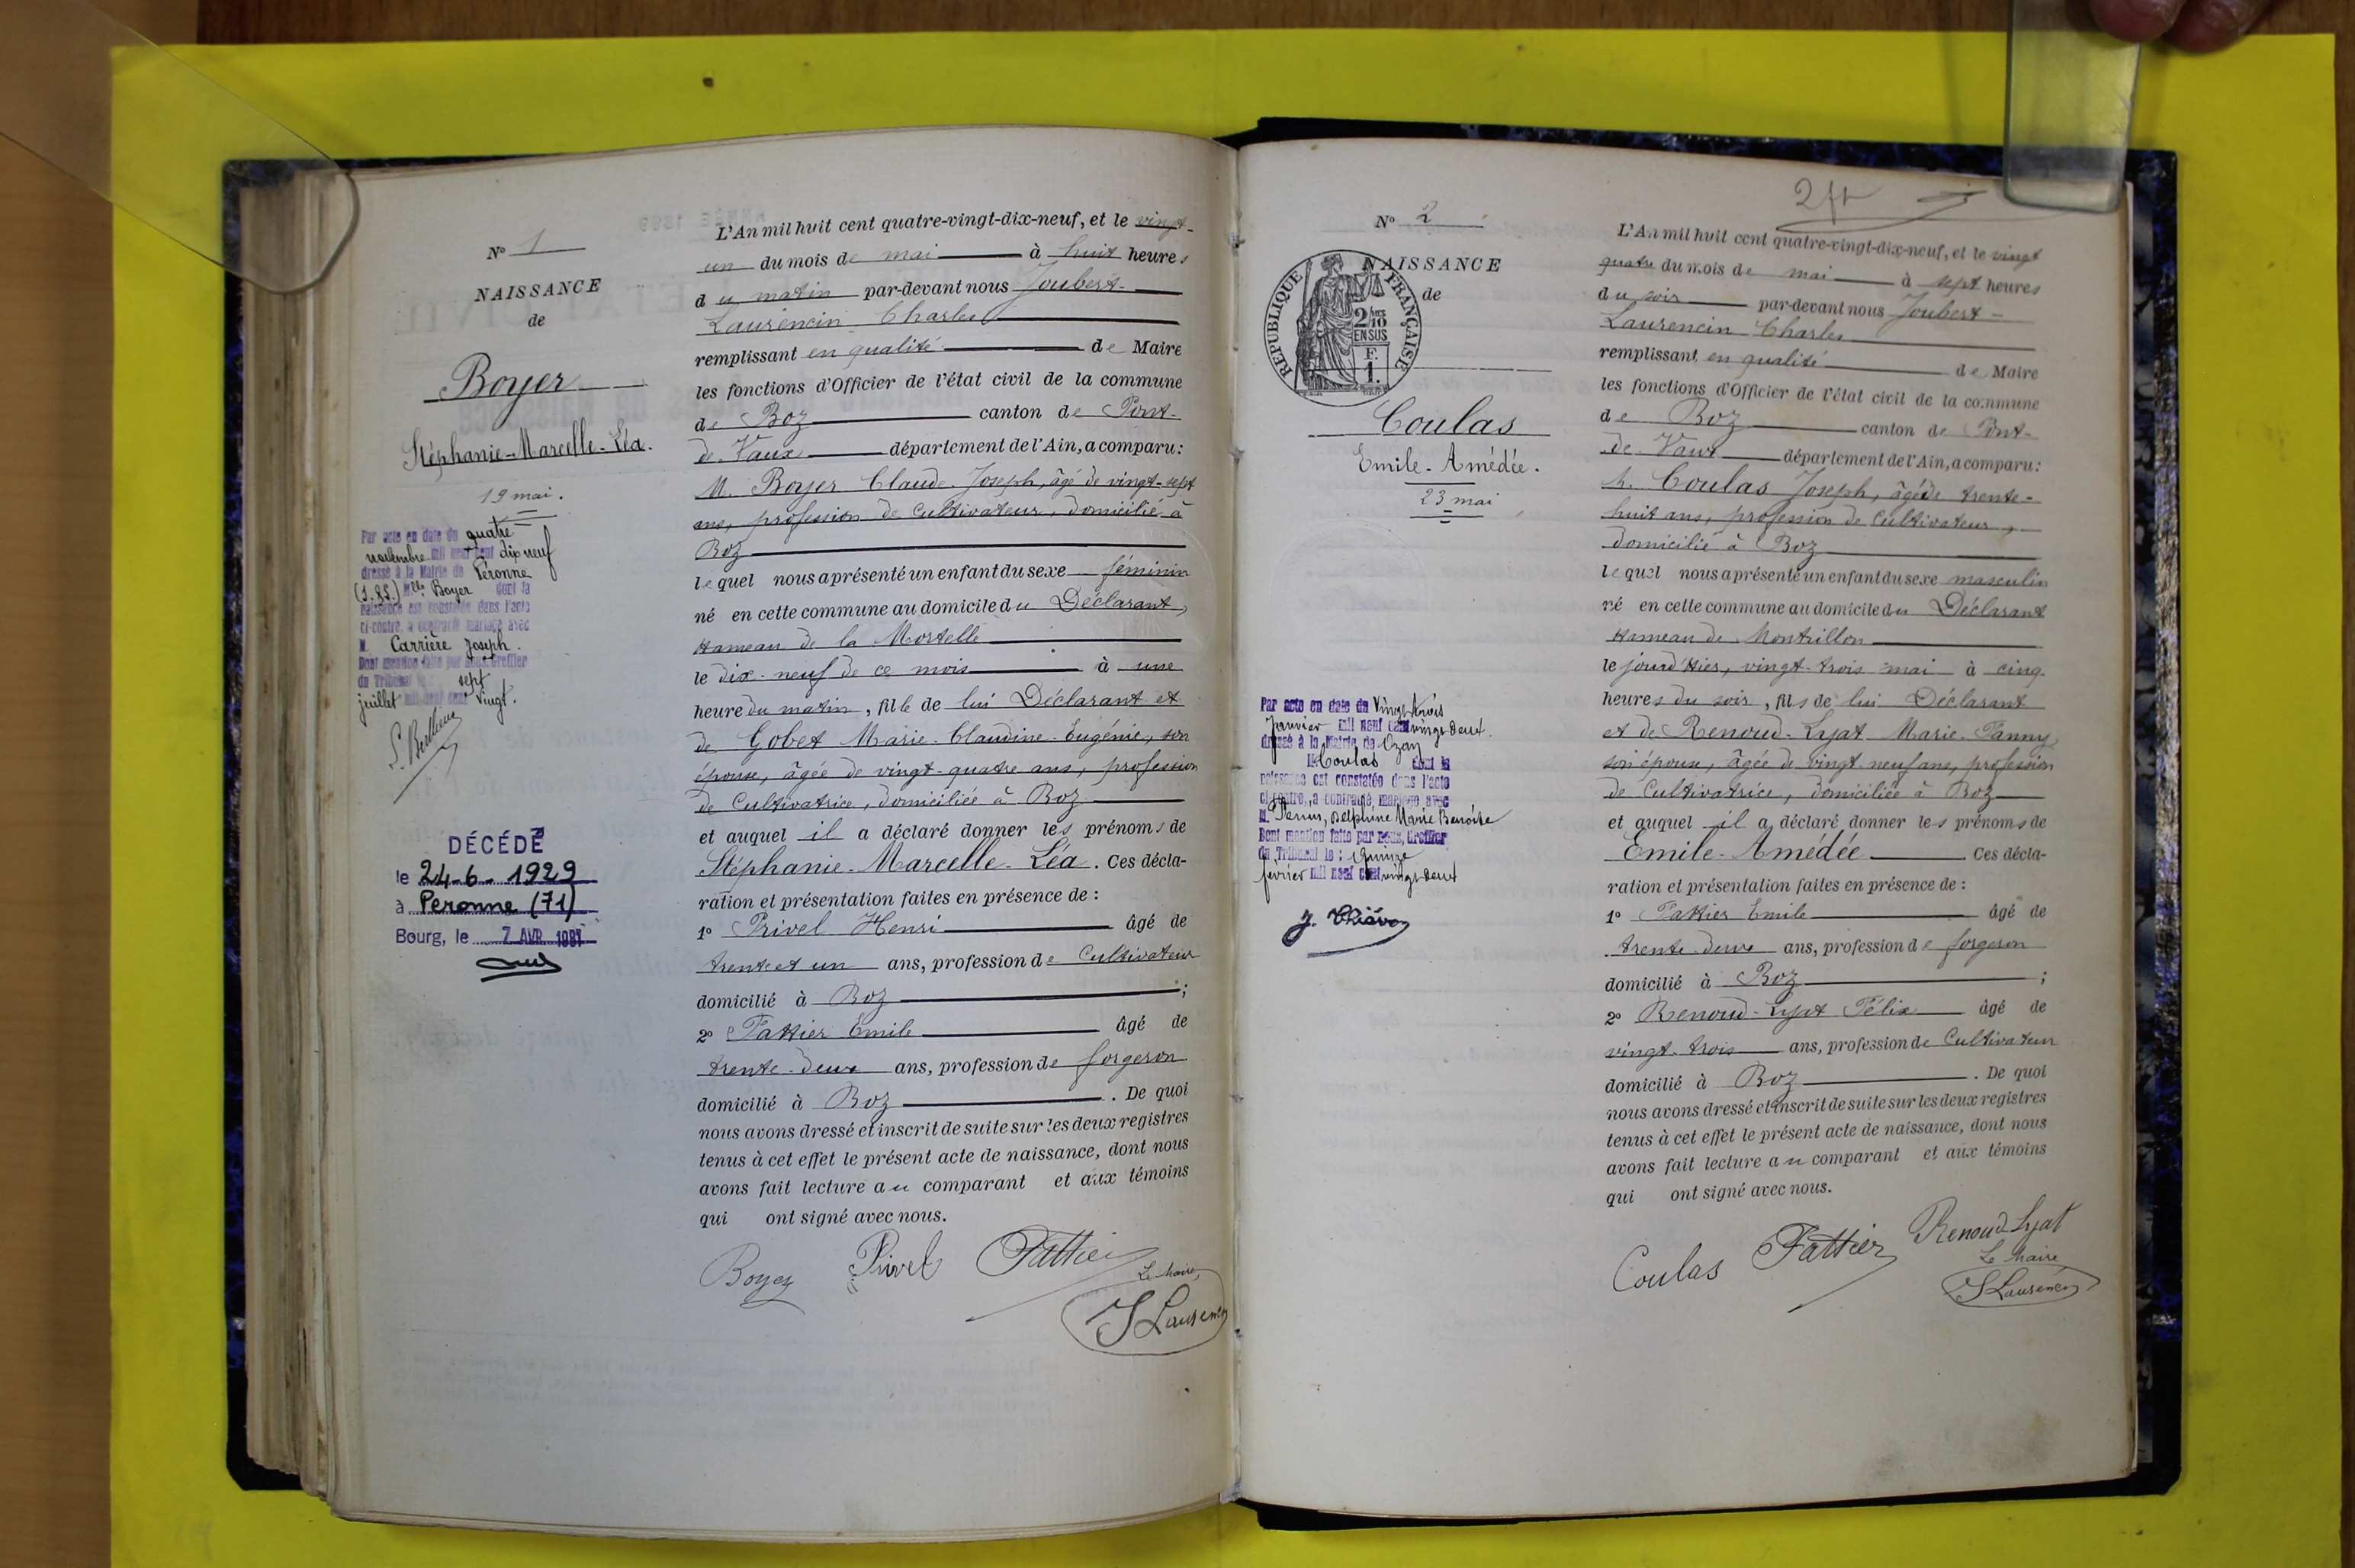 N° 1
NAISSANCE
de
Boyer
Stéphanie-Marcelle-Léa.
19 mai.
Par acte en date du quatre
novembre mil neuf cent dix neuf
dressé à la Mairie de Péronne
(S.&L.) Mlle Boyer dont la
naissance est constatée dans l'acte
ci-contre, a contracté mariage avec
M. Carrière Joseph.
Dont mention faite par nous Greffier
du Tribunal le sept
juillet mil neuf cent vingt.
DÉCÉDÉ
le 24-6-1929
à Peronne (71)
Bourg, le 7 AVR
L'An mil huit cent quatre-vingt-dix-neuf, et le vingt-
un du mois de mai à huit heures
du matin par-devant nous Joubert-
Laurencin Charles
remplissant en qualité de Maire
les fonctions d'Officier de l'état civil de la commune
de Boz canton de Pont-
de Vaux département de l'Ain, a comparu:
M. Boyer Claude-Joseph, âgé de vingt-sept
ans, profession de Cultivateur, domicilié à
Boz
lequel nous a présenté un enfant du sexe féminin
né en cette commune au domicile du Déclarant,
Hameau de la Mortelle
le dix-neuf de ce mois à une
heure du matin, fille de lui Déclarant et
de Gobet Marie-Claudine-Eugénie, son
épouse, âgée de vingt-quatre ans, profession
de Cultivatrice, domiciliée à Boz
et auquel il a déclaré donner les prénoms de
Stéphanie-Marcelle-Léa. Ces décla-
ration et présentation faites en présence de :
1° Privel Henri âgé de
trente et un ans, profession de Cultivateur
domicilié à Boz ;
2° Pattier Emile âgé de
trente-deux ans, profession de forgeron
domicilié à Boz . De quoi
nous avons dressé et inscrit de suite sur les deux registres
tenus à cet effet le présent acte de naissance, dont nous
avons fait lecture au comparant et aux témoins
qui ont signé avec nous.
Boyer Privel Pattier
Le Maire,
J Laurencin
2
N° 2
NAISSANCE
de
REPUBLIQUE FRANÇAISE
2/10
EN SUS
F.
1.
Coulas
Emile-Amédée.
23 mai
Par acte en date du Vingt trois
Janvier mil neuf cent vingt-deux.
dressé à la Mairie de Ozan
le Coulas dont la
naissance est constatée dans l'acte
ci-contre, a contracté mariage avec
Delphine Marie Benoîte
Dont mention faite par nous, Greffier
du Tribunal le : quinze
février mil neuf cent vingt-deux
L'An mil huit cent quatre-vingt-dix-neuf, et le vingt
quatre du mois de mai à sept heures
du soir par-devant nous Joubert-
Laurencin Charles
remplissant en qualité de Maire
les fonctions d'Officier de l'état civil de la commune
de Boz canton de Pont-
de Vaux département de l'Ain, a comparu:
M. Coulas Joseph, âgé de trente-
huit ans, profession de Cultivateur,
domicilié à Boz
lequel nous a présenté un enfant du sexe masculin
né en cette commune au domicile du Déclarant
Hameau de Montrillon
le jourd'hier, vingt-trois mai à cinq
heures du soir, fils de lui Déclarant
et de Renoud-Lyat Marie-Fanny,
son épouse, âgée de vingt-neuf ans, profession
de Cultivatrice, domiciliée à Boz
et auquel il a déclaré donner les prénoms de
Emile-Amédée Ces décla-
ration et présentation faites en présence de :
1° Pattier Emile âgé de
trente-deux ans, profession de forgeron
domicilié à Boz ;
2° Renoud-Lyat Félix âgé de
vingt-trois ans, profession de Cultivateur
domicilié à Boz . De quoi
nous avons dressé et inscrit de suite sur les deux registres
tenus à cet effet le présent acte de naissance, dont nous
avons fait lecture au comparant et aux témoins
qui ont signé avec nous.
Coulas Pattier Renoud-Lyat
Le Maire
J Laurencin